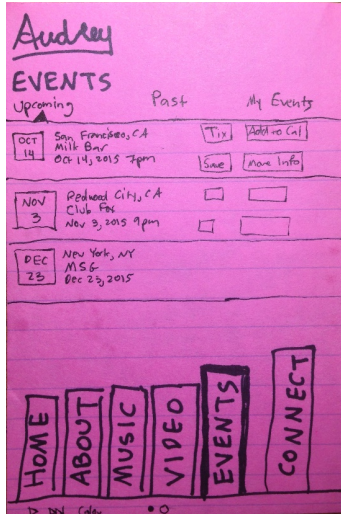 Audrey
EVENTS
Upcoming Past My Events
OCT 14
San Francisco, CA
Milk Bar
Oct 14, 2015 7pm
Tix Add to Cal
Save More Info
NOV 3
Redwood City, CA
Club Fox
Nov 3, 2015 9pm
DEC 23
New York, NY
MSG
Dec 23, 2015
HOME
ABOUT
MUSIC
VIDEO
EVENTS
CONNECT